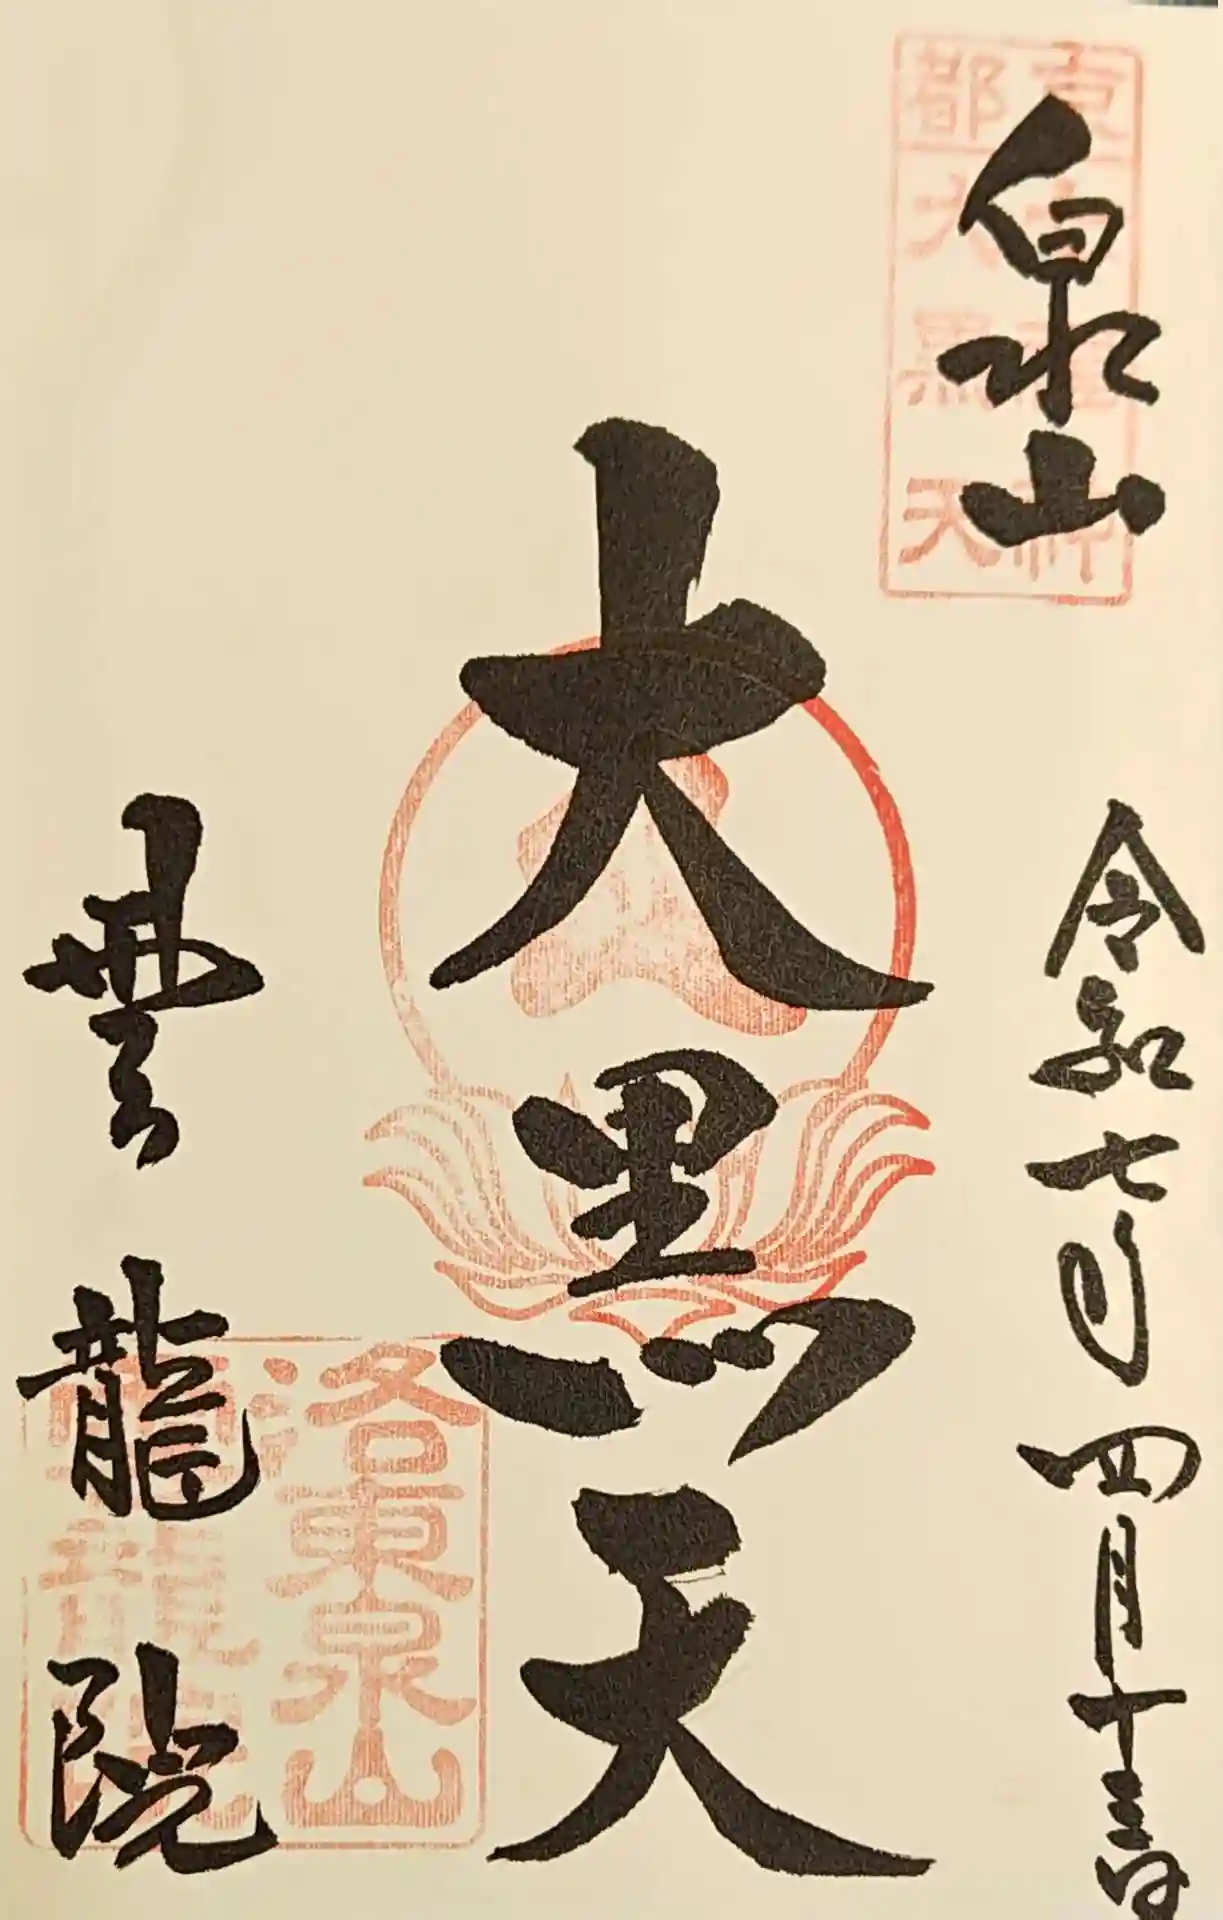 泉山
令和七年四月十三日
大黒天
雲龍院
京都
大黒天
洛東泉山
雲龍院